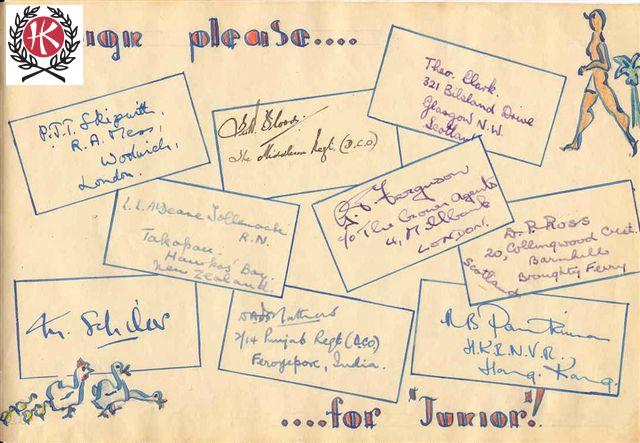 HK
ign please....
P.J.T. Skipwith,
R.A. Mess,
Woolwich,
London.
The Middlesex Regt. (D.C.O)
Theo. Clark.
321 Bilsland Drive
Glasgow N.W.
Scotland
L.L. A'Deane Tollemache
R.N.
Takapau.
Hawkes' Bay.
New Zealand.
Ferguson
c/o The Crown Agents
4, Millbank
LONDON.
D. R. Ross
20, Collingwood Cresc.
Barnhill
Broughty Ferry
Scotland
2/14 Punjab Regt (D.C.O)
Ferozepore, India.
H.K.R.N.V.R.,
Hong Kong.
....for "Junior"!